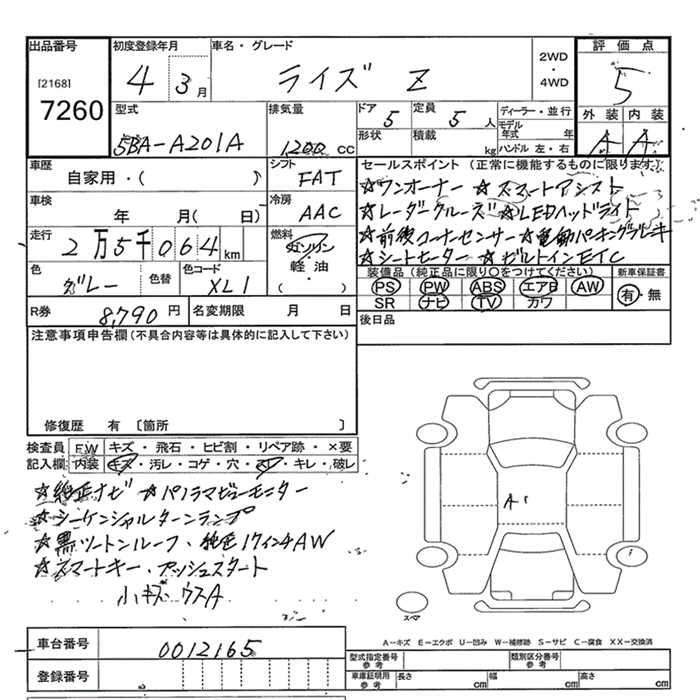 出品番号 初度登録年月 車名・グレード 評価点
[2168] 7260
4 3月 ライズ Z 2WD・4WD 5
型式 排気量 ドア 5 定員 5人 ディーラー・並行 外装 内装
5BA-A201A 1200 CC 形状 積載 kg モデル年式 年 A A
ハンドル 左・右
車歴 シフト セールスポイント (正常に機能するものに限ります。)
自家用・( ) FAT ☆ワンオーナー ☆スマートアシスト
車検 冷房 ☆レーダークルーズ ☆LEDヘッドライト
年 月( 日) AAC ☆前後コーナーセンサー ☆電動パーキングブレーキ
走行 燃料 ☆シートヒーター ☆ビルトインETC
2万5千064km ガソリン・軽油・( )
色 色替 色コード 装備品 (純正品に限り○をつけてください) 新車保証書
グレー XL1 PS PW ABS エアB AW 有・無
SR ナビ TV カワ
R券 8,790円 名変期限 月 日 後日品
注意事項申告欄(不具合内容等は具体的に記入して下さい)
修復歴 有 [箇所 ]
検査員 FW キズ・飛石・ヒビ割・リペア跡・×要
記入欄 内装 キズ・汚レ・コゲ・穴・スレ・キレ・破レ
☆純正ナビ ☆パノラマビューモニター
☆シーケンシャルターンランプ
☆黒ツートンルーフ、純正17インチAW
☆スマートキー・プッシュスタート
小キズ・ウスA
A'
スペア
A-キズ E-エクボ U-凹み W-補修跡 S-サビ C-腐食 XX-交換済
車台番号 0012165
型式指定番号 参考 類別区分番号 参考
登録番号 車庫証明用 参考 長さ cm 幅 cm 高さ cm